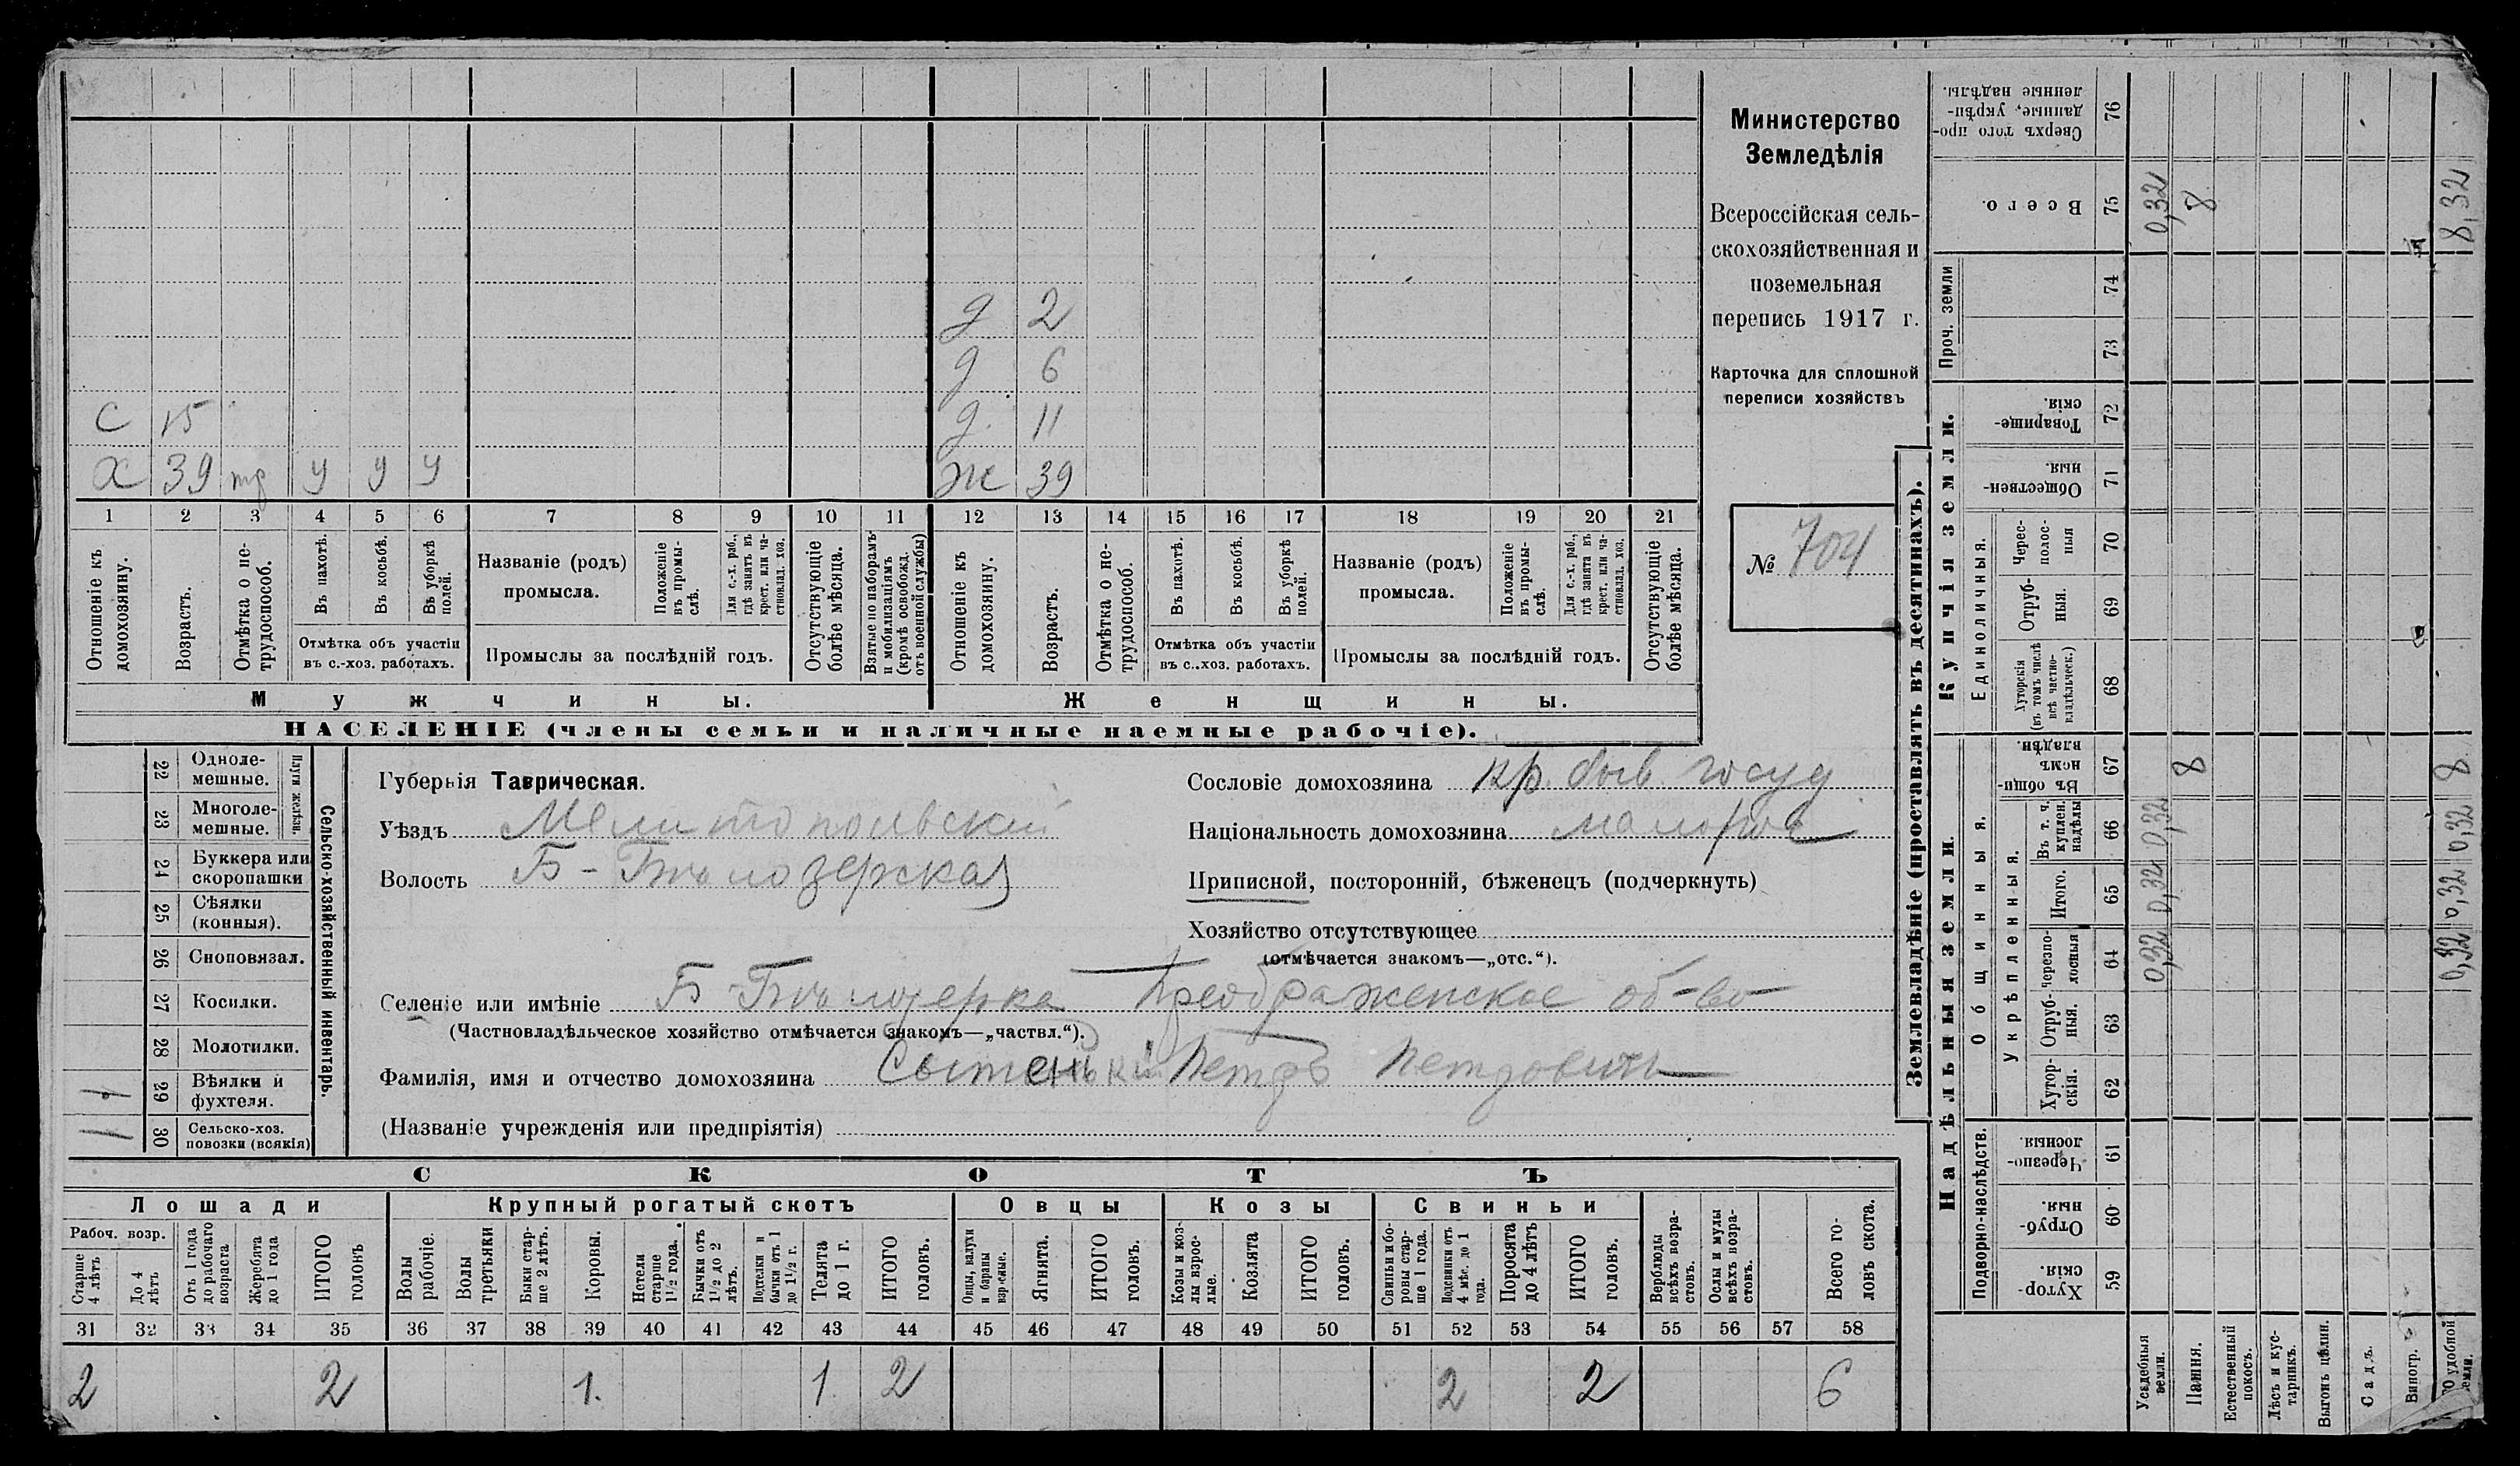 Министерство
Земледѣлія
Всероссійская сель-
скохозяйственная и
поземельная
перепись 1917 г.
Карточка для сплошной
переписи хозяйствъ
№ 704
д 2
д 6
С 15 д. 11
Х 39 тд у у у Ж 39
1 2 3 4 5 6 7 8 9 10 11 12 13 14 15 16 17 18 19 20 21
Отношеніе къ домохозяину.
Возрастъ.
Отмѣтка о не-трудоспособ.
Въ пахотѣ.
Въ косьбѣ.
Въ уборкѣ полей.
Отмѣтка объ участіи
въ с.-хоз. работахъ.
Названіе (родъ)
промысла.
Положеніе въ промы-слѣ.
Для с.-х. раб., гдѣ занятъ въ крест. или ча-стновлад. хоз.
Промыслы за послѣдній годъ.
Отсутствующіе болѣе мѣсяца.
Взятые по наборамъ и мобилизаціямъ (кромѣ освобожд. отъ военной службы)
Отношеніе къ домохозяину.
Возрастъ.
Отмѣтка о не-трудоспособ.
Въ пахотѣ.
Въ косьбѣ.
Въ уборкѣ полей.
Отмѣтка объ участіи
въ с..хоз. работахъ.
Названіе (родъ)
промысла.
Положеніе въ промы-слѣ.
Для с.-х. раб., гдѣ занята въ крест. или ча-стновлад. хоз.
Промыслы за послѣдній годъ.
Отсутствующіе болѣе мѣсяца.
Мужчины. Женщины.
НАСЕЛЕНІЕ (члены семьи и наличные наемные рабочіе).
Сельско-хозяйственный инвентарь.
Плуги желѣзн.
22 Одноле-мешные.
23 Многоле-мешные.
24 Буккера или скоропашки
25 Сѣялки (конныя).
26 Сноповязал.
27 Косилки.
28 Молотилки.
29 Вѣялки и фухтеля. 1
30 Сельско-хоз. повозки (всякія) 1
Губернія Таврическая.
Уѣздъ Мелитопольскій
Волость Б-Бѣлозерская
Сословіе домохозяина кр. быв. госуд
Національность домохозяина малорос
Приписной, посторонній, бѣженецъ (подчеркнуть)
Хозяйство отсутствующее
(отмѣчается знакомъ—„отс.“).
Селеніе или имѣніе Б-Бѣлозерка Преображенское об-во
(Частновладѣльческое хозяйство отмѣчается знакомъ—„частвл.“).
Фамилія, имя и отчество домохозяина Сытенькій Петръ Петровичъ
(Названіе учрежденія или предпріятія)
СКОТЪ
Лошади Крупный рогатый скотъ Овцы Козы Свиньи
Рабоч. возр.
Старше 4 лѣтъ
До 4 лѣтъ
Отъ 1 года до рабочаго возраста
Жеребята до 1 года
ИТОГО головъ
Волы рабочіе.
Волы третьяки
Быки стар-ше 2 лѣтъ.
Коровы.
Нетели старше 1½ года.
Бычки отъ 1½ до 2 лѣтъ.
Подтелки и бычки отъ 1 до 1½ г.
Телята до 1 г.
ИТОГО головъ.
Овцы, валухи и бараны взрослые.
Ягнята.
ИТОГО головъ.
Козы и коз-лы взрос-лые.
Козлята
ИТОГО головъ.
Свиньи и бо-ровы стар-ше 1 года.
Подсвинки отъ 4 мѣс. до 1 года.
Поросята до 4 лѣтъ
ИТОГО головъ.
Верблюды всѣхъ возра-стовъ.
Ослы и мулы всѣхъ возра-стовъ.
Всего го-ловъ скота.
31 32 33 34 35 36 37 38 39 40 41 42 43 44 45 46 47 48 49 50 51 52 53 54 55 56 57 58
2 2 1. 1 2 2 2 6
Землевладѣніе (проставлять въ десятинахъ).
Надѣльныя земли. Купчія земли. Проч. земли
Подворно-наслѣдств.
Общинныя.
Укрѣпленныя.
Единоличныя.
Хутор-скія. 59
Отруб-ныя. 60
Черезпо-лосныя. 61
Хутор-скія. 62
Отруб-ныя. 63
черезпо-лосныя 64
Итого. 65
Въ т. ч. куплен. надѣлы 66
Въ общи-номъ владѣн. 67
Хуторскія (въ томъ числѣ всѣ частно-владѣльческ.) 68
Отруб-ныя. 69
Черес-полос-ныя 70
Обществен-ныя. 71
Товарище-скія. 72
73
74
Всего. 75
Сверхъ того про-данные, укрѣп-ленные надѣлы. 76
Усадебныя земли. 0,32 0,32 0,32 0,32
Пашня. 8 8
Естественный покосъ.
Лѣсъ и кус-тарникъ.
Выгонъ цѣлин.
Садъ.
Виногр.
удобной земли. 0,32 0,32 0,32 8 8,32